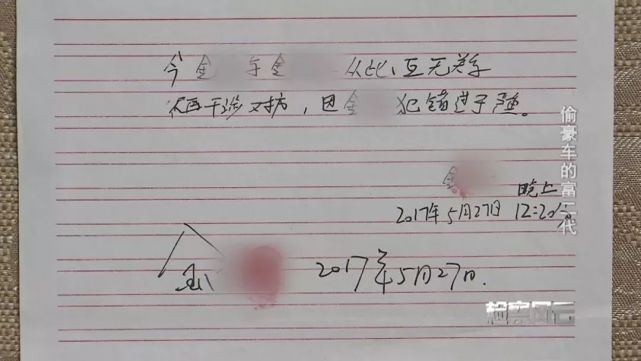 今金 与金 从此互无关系
不再干涉对方，因金 犯错过于严重。
金 晚上
2017年5月27日 12:20分
金 2017年5月27日.
偷豪车的富二代
检察风云